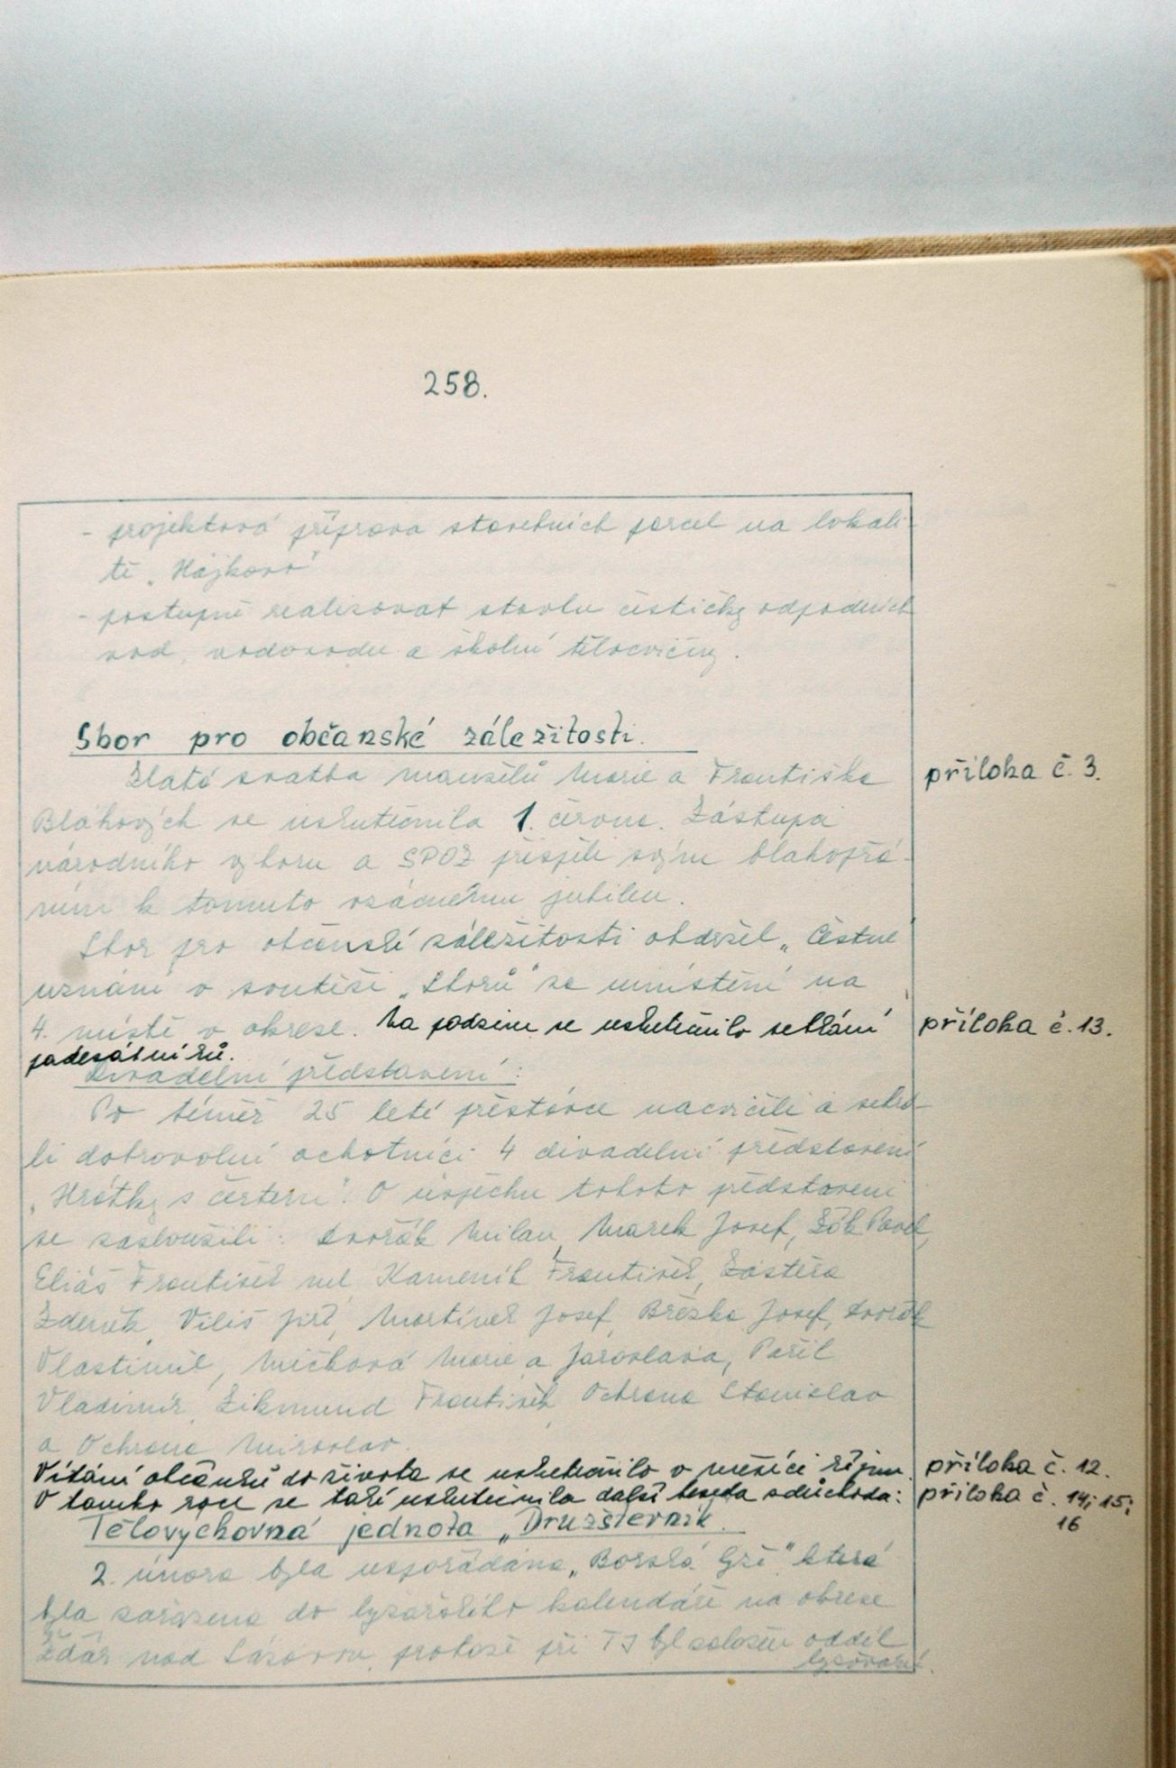 258.
- projektová příprava stavebních parcel na lokali-
tě „Hájkova"
- postupně realizovat stavbu čističky odpadních
vod, vodovodu a školní tělocvičny.
Sbor pro občanské záležitosti.
Zlatá svatba manželů Marie a Františka
příloha č. 3.
Bláhových se uskutečnila 1. června. Zástupci
národního výboru a SPOZ přispěli svým blahopřá-
ním k tomuto vzácnému jubileu.
Sbor pro občanské záležitosti obdržel „Čestné
uznání v soutěži „Sborů" se umístění na
4. místě v okrese. Na podzim se uskutečnilo setkání
příloha č. 13.
padesátníků.
Divadelní představení:
Po téměř 25 leté přestávce nacvičili a sehrá-
li dobrovolní ochotníci 4 divadelní představení
„Hrátky s čertem". O úspěchu tohoto představení
se zasloužili: Dvořák Milan, Marek Josef, Žák Pavel,
Eliáš František ml, Kameník František, Zástěra
Zdeněk, Viliš Jiří, Martínek Josef, Březka Josef, Dvořák
Vlastimil, Mičková Marie a Jaroslava, Pařil
Vladimír, Zikmund František, Ochrana Stanislav
a Ochrana Miroslav.
Vítání občánků do života se uskutečnilo v měsíci říjnu.
příloha č. 12.
V tomto roce se také uskutečnila další beseda s důchodci:
příloha č. 14; 15;
16
Tělovýchovná jednota „Družstevník.
2. února byla uspořádána „Borská lyže" která
byla zařazena do lyžařského kalendáře na okrese
Žďár nad Sázavou, protože při TJ byl založen oddíl
lyžování.